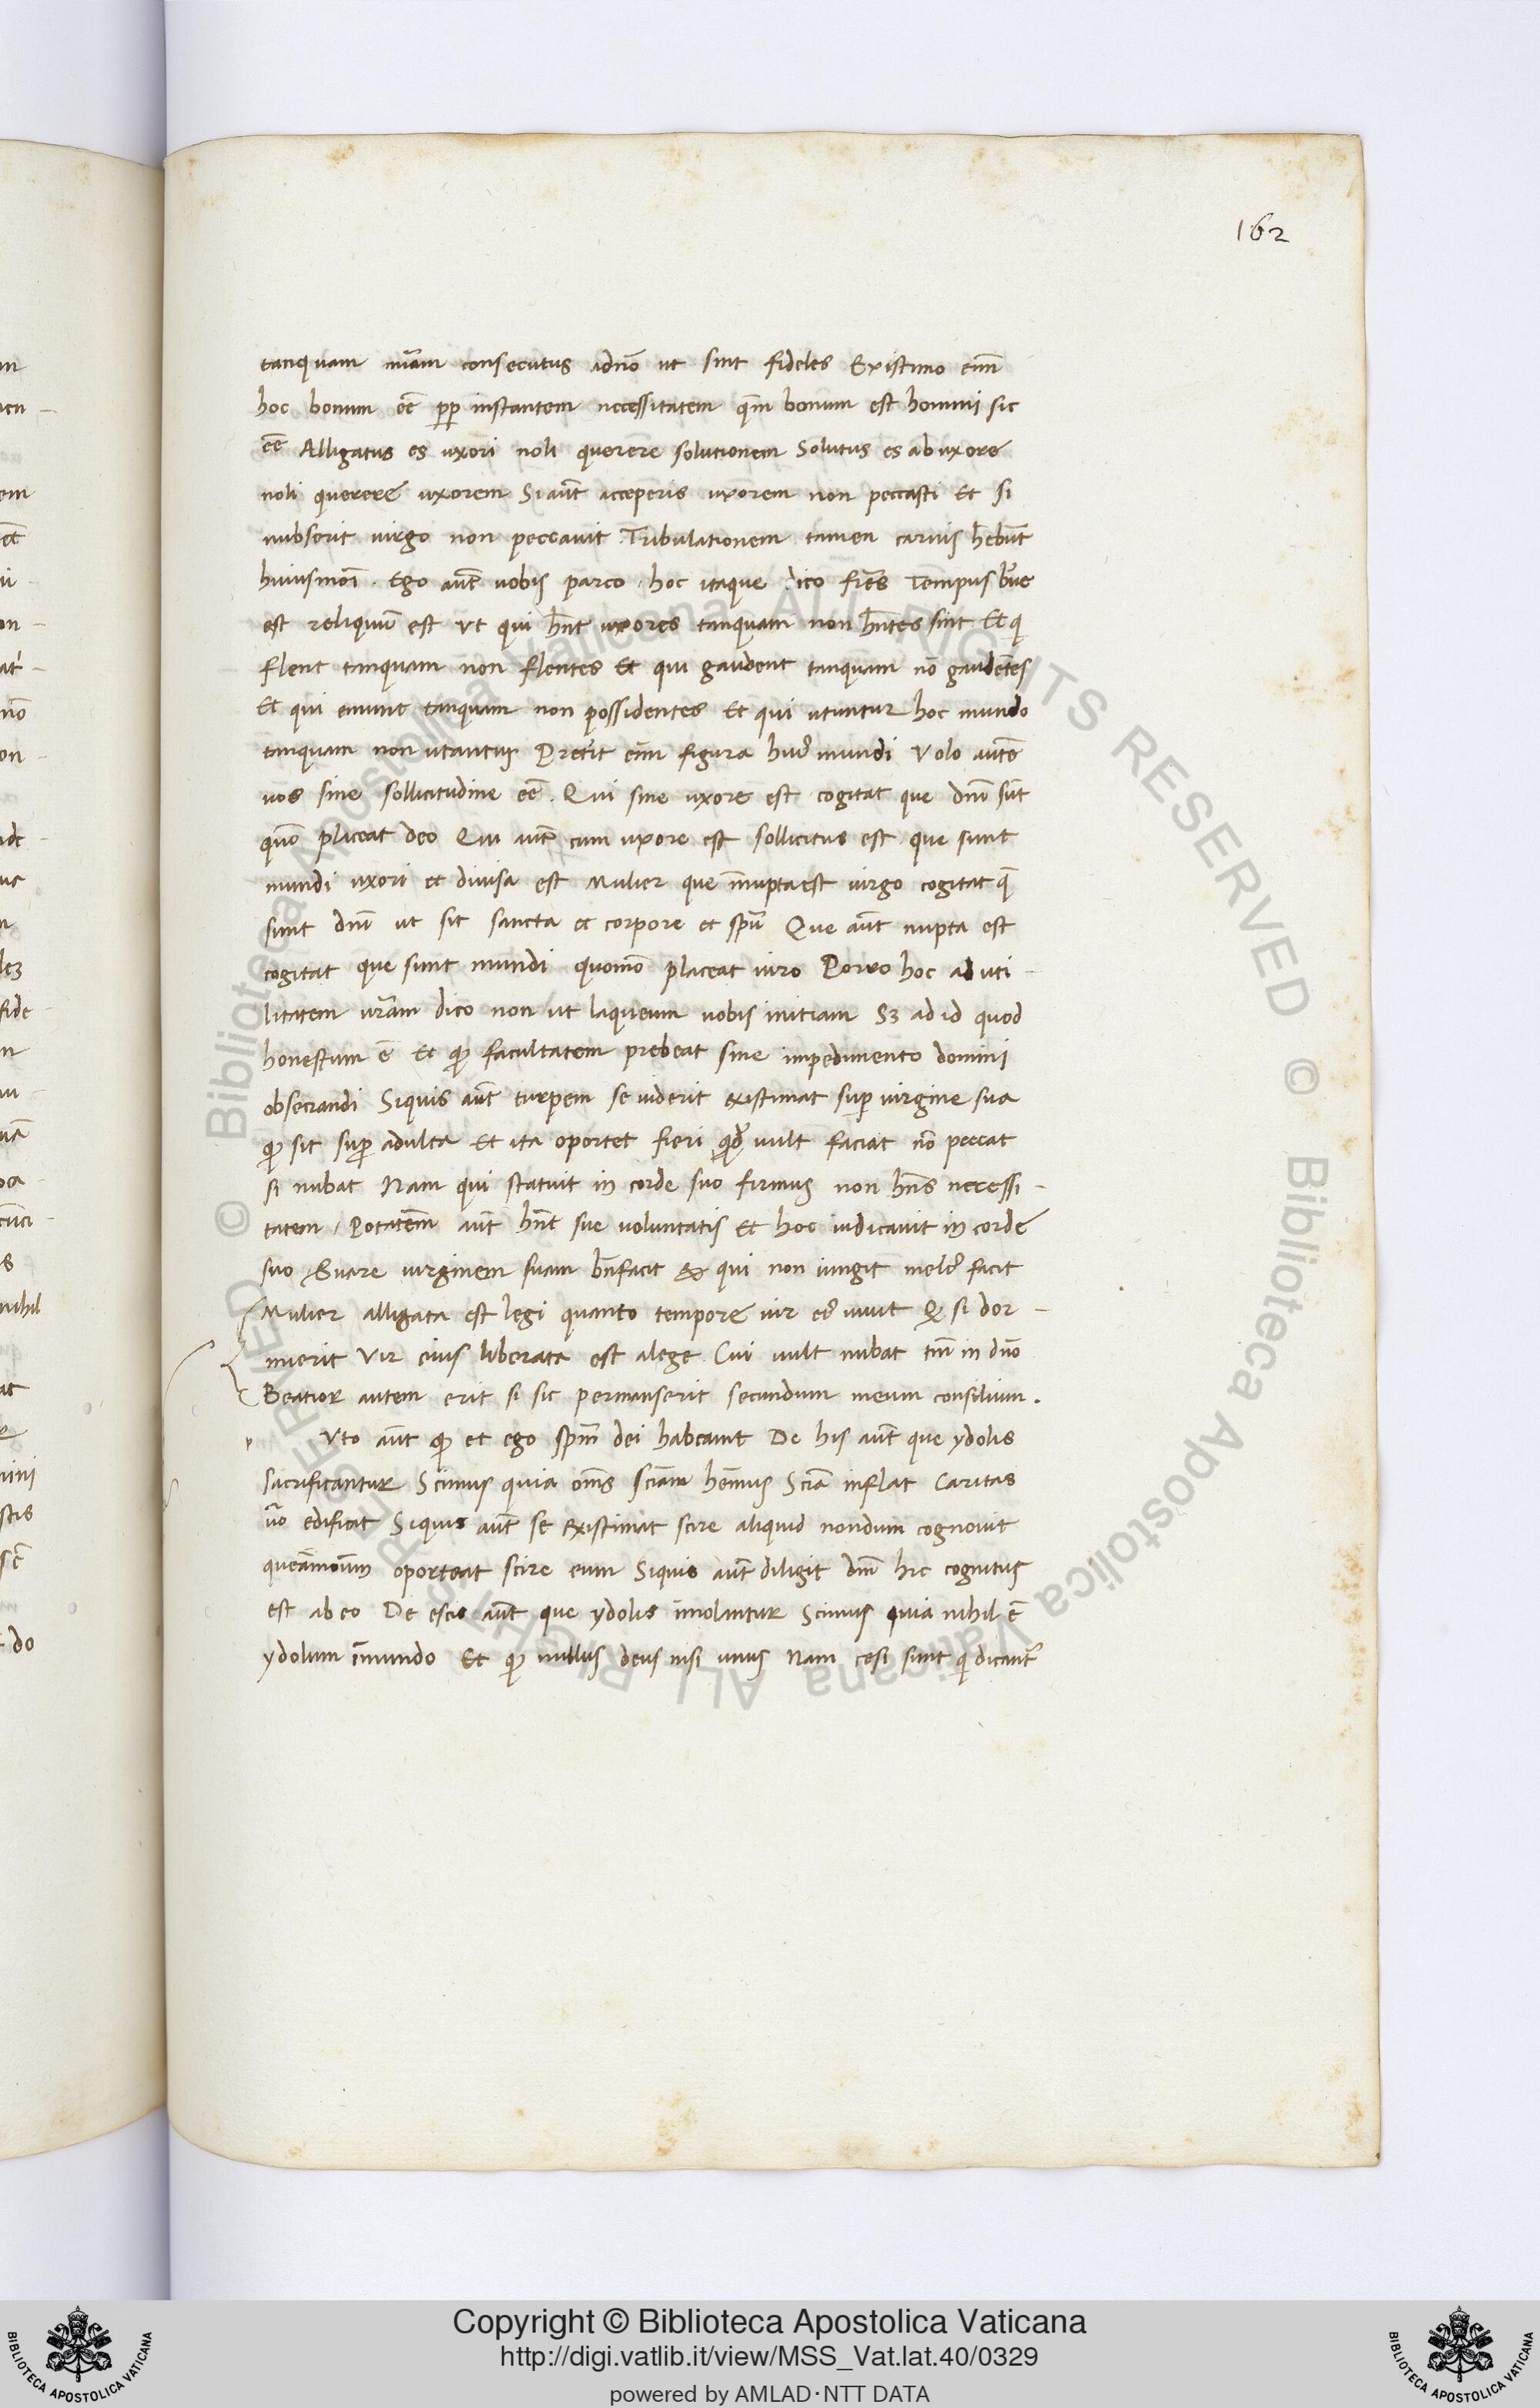 162
tanquam mr̃am consecutus adnõ ut sint fideles Existimo enĩ
hoc bonum eẽ pp̃ instantem necessitatem qm̃ bonum est homini sic
eẽ Alligatus es uxori noli querere solutionem Solutus es ab uxore
noli querere uxorem Si aũt acceperis uxorem non peccasti Et si
nubserit uirgo non peccauit Tribulationem tamen carnis hẽbũt
huiusmõi . Ego aũt uobis parco . hoc itaque dico frẽs Tempus br̃ue
est reliquũ est Ut qui hñt uxores tanquam non hñtes sint Et q̃
flent tanquam non flentes Et qui gaudent tanquam nõ gaudẽtes
Et qui emunt tanquam non possidentes Et qui utuntur hoc mundo
tanquam non utantur Preterit enĩ figura hui᾽ mundi Volo autẽ
uos sine sollicitudine eẽ . Qui sine uxore est cogitat que dnĩ sũt
quõ placeat deo Qui aũt cum uxore est sollicitus est que sunt
mundi uxori et diuisa est Mulier que ĩnupta est uirgo cogitat q̃
sunt dnĩ ut sit sancta et corpore et spũ Que aũt nupta est
cogitat que sunt mundi quomõ placeat uiro Porro hoc ad uti -
litatem ur̃am dico non ut laqueum uobis initiam Sꝫ ad id quod
honestum ẽ Et ꝙ facultatem prebeat sine impedimento domini
obsecrandi Siquis aũt turpem se uiderit existimat sup̃ uirgine sua
ꝙ sit sup̃ adulta Et ita oportet fieri qđ uult faciat nõ peccat
si nubat Nam qui statuit in corde suo firmus non hñs necessi -
tatem / Potatẽm aũt hñt sue voluntatis Et hoc iudicauit in corde
suo s̃uare uirginem suam bñfacit Et qui non iungit meli᾽ facit
Mulier alligata est legi quanto tempore uir ei᾽ uiuit ꝙ si dor -
mierit Vir eius liberata est alege Cui uult nubat tm̃ in dño
Beatior autem erit si sic permanserit secundum meum consilium .
Uto aũt ꝙ et ego spm̃ dei habeamt De his aũt que ydolis
sacrificantur Scimus quia om̃s sciãm hẽmus Sciã inflat Caritas
u͂o edificat Siquis aũt se existimat scire aliquid nondum cognouit
queãmõum oporteat scire eum Siquis aũt diligit dm̃ hic cognitus
est ab eo De escis aũt que ydolis ĩmolantur Scimus quia nihil ẽ
ydolum ĩmundo Et ꝙ nullus deus nisi unus Nam & si sunt q̃ dicant᾽
Copyright © Biblioteca Apostolica Vaticana
http://digi.vatlib.it/view/MSS_Vat.lat.40/0329
powered by AMLAD·NTT DATA
BIBLIOTECA APOSTOLICA VATICANA
BIBLIOTECA APOSTOLICA VATICANA